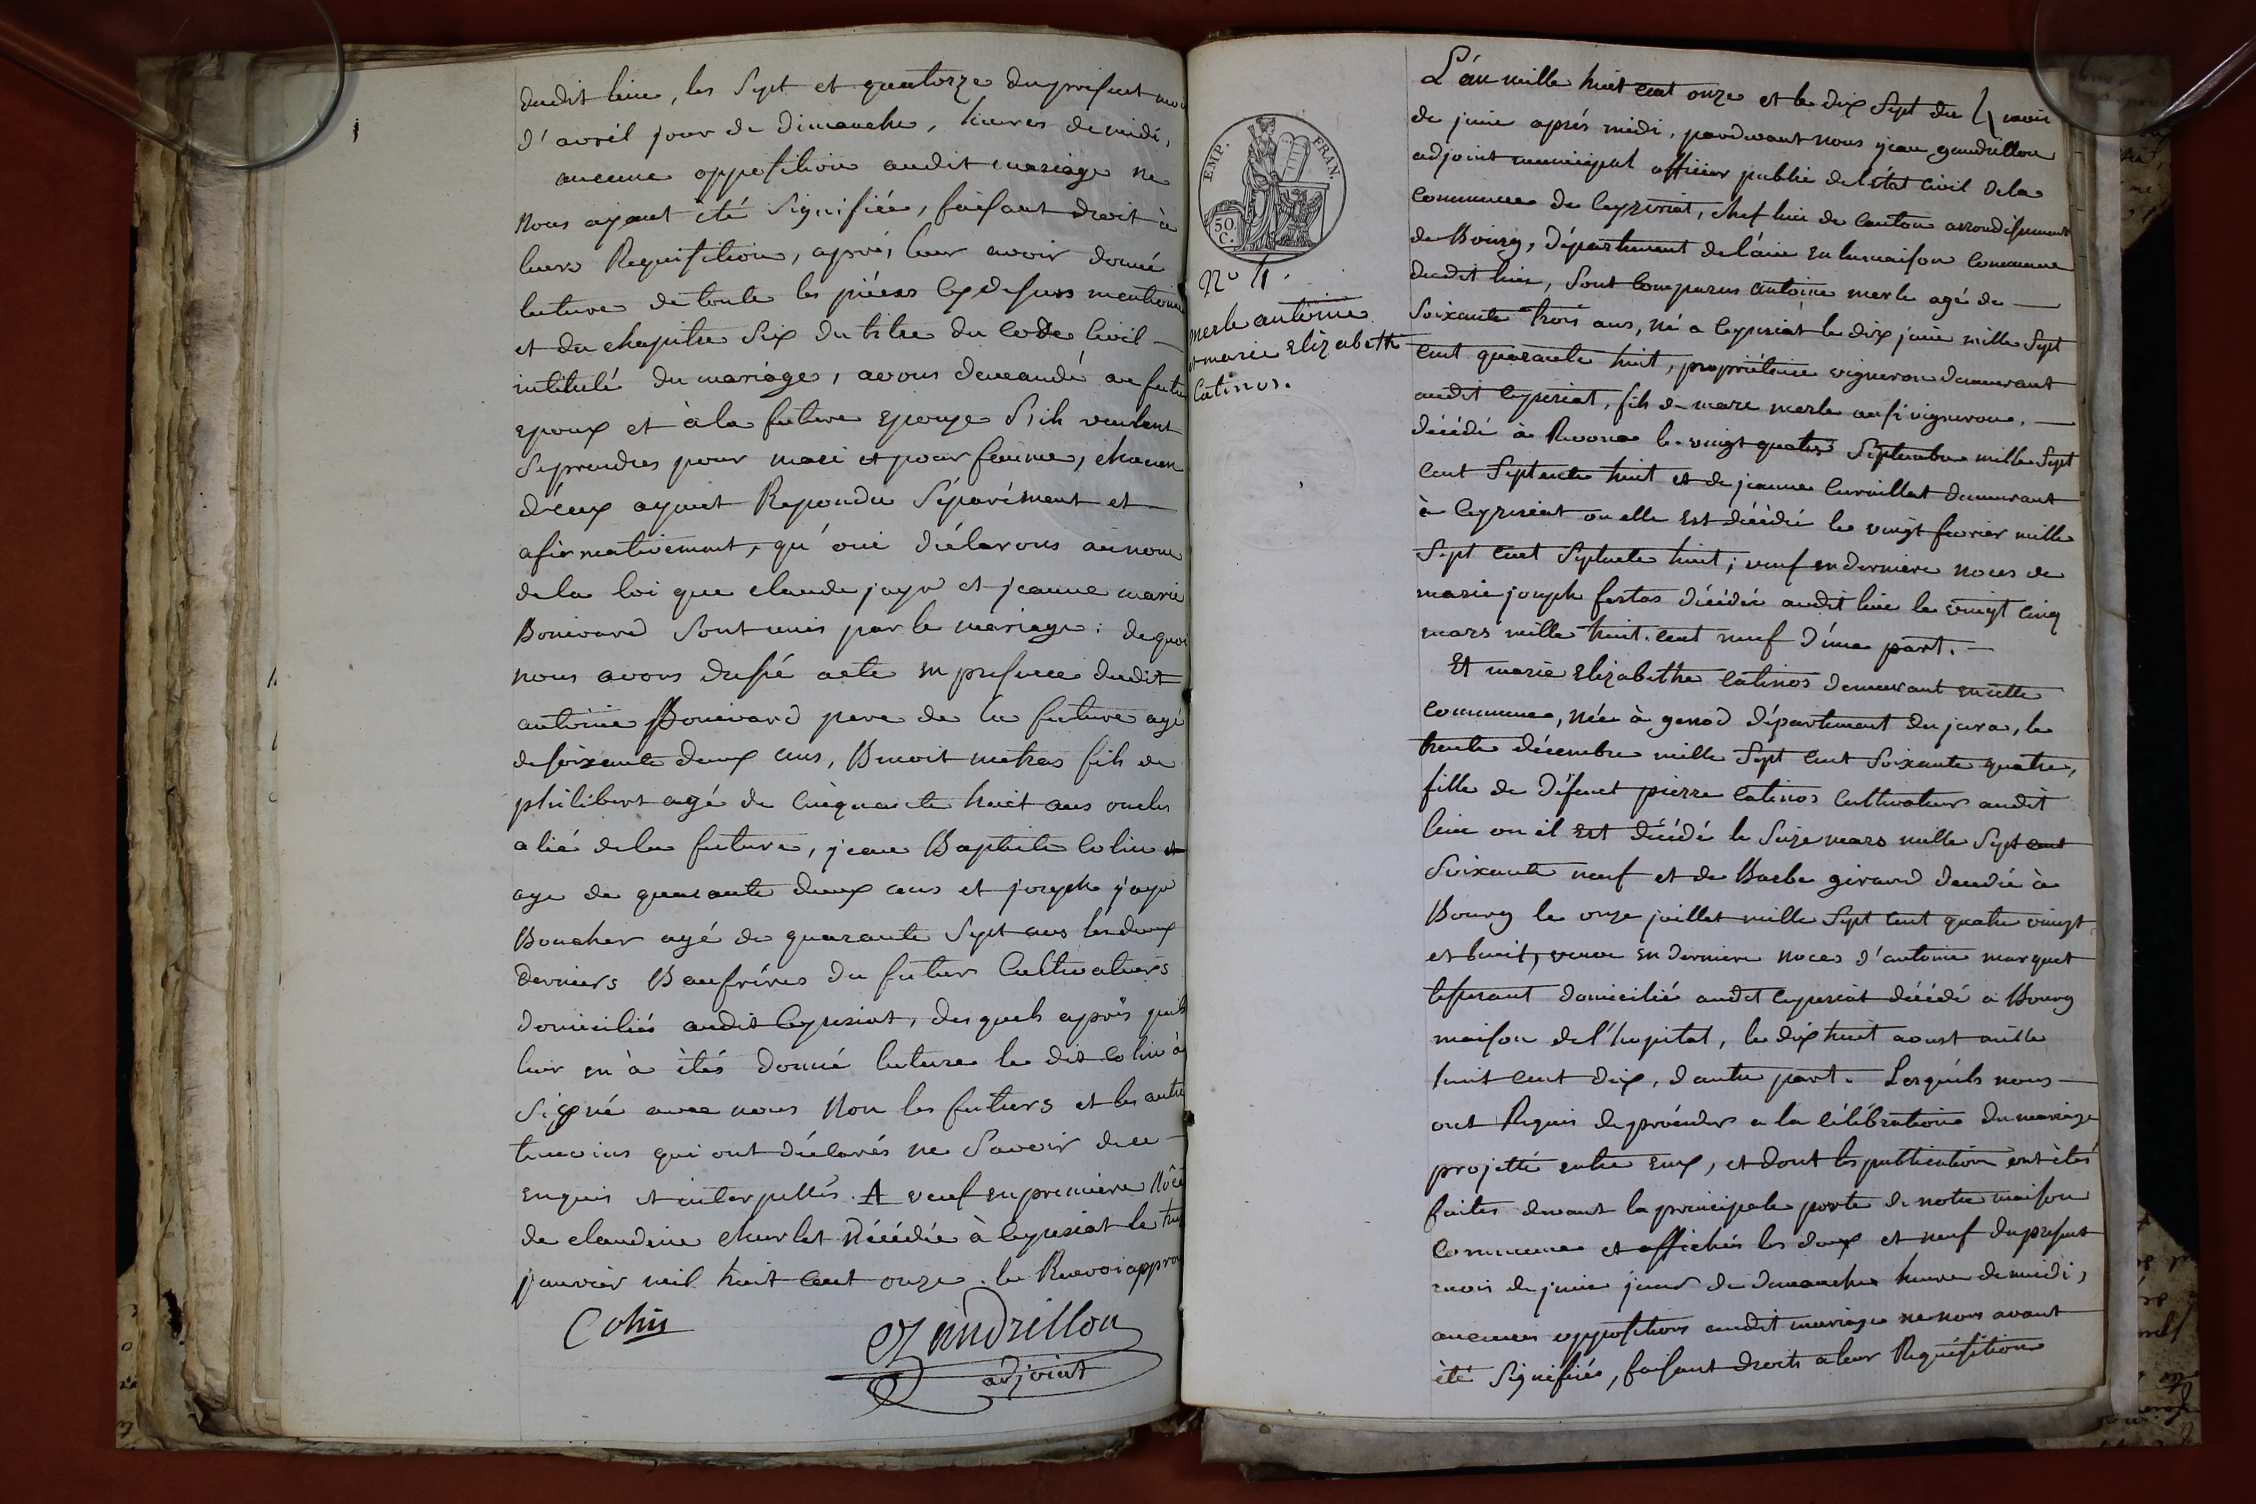 dudit lieu, les Sept et quatorze du present moi
d'avril jour de dimanche, heures de midi,
aucune opposition audit mariage ne
Nous ayant été Signifiée, faisant droit à
leurs Requisition, après leur avoir donné
lecture de toute les pièces Cy dessus mentionné
et du chapitre Six du titre du Code Civil
intitulé du mariage, avons demandé au futur
epoux et à la future Epouse S'ils veulent
Se prendres pour mari et pour femme, chacun
d'eux ayant Repondu Séparément et
afirmativement, qu'oui déclarons au nom
de la loi que claude jayr et jeanne marie
Bonivard Sont unis par le mariage: de quoi
nous avons dressé acte en presence dudit
antoine Bonivard pere de la future agé
de soixante deux ans, Benoit metras fils de
philibert agé de Cinquante huit ans oncles
alié de la future, jean Baptiste Colin
age de quarante deux ans et joseph jayr
Boucher agé de quarante Sept ans les deux
derniers Beaufrères du futur Cultivateurs
domiciliés audit Ceyzeriat, desquels après qu'il
leur en à étés donné lecture le dit Colin à
Signé avec nous Non les futurs et les autre
temoins qui ont déclarés ne Savoir de ce
enquis et interpellés. A veuf en premiere Nôce
de claudine Décédée à Ceyzeriat le
janvier mil huit Cent onze. le Renvoi approu
Colin
Gandrillon
adjoint
EMP. FRAN.
50 C.
No
merle antoine
et marie Elizabeth
Catinos.
L'an mille huit cent onze et le dix Sept du mois
de juin après midi, pardevant nous jean gandrillon
adjoint municipal officier public de l'état Civil de la
Commune de Ceyzeriat, chef lieu de Canton arrondissement
de Bourg, Département de l'ain en la maison Commune
dudit lieu, Sont Comparus antoine merle agé de
Soixante trois ans, né a Ceyzeriat le dix juin mille Sept
Cent quarante huit, propriétaire vigneron demeurant
audit Ceyzeriat, fils de marc merle aussi vigneron,
décédé à Revona le vingt quatre Septembre mille Sept
Cent Septente huit et de jeanne Curvillat demeurant
à Ceyzeriat ou elle Est décédée le vingt fevrier mille
Sept Cent Septente huit; veuf en derniere noces de
marie joseph decédée audit lieu le vingt cinq
mars mille huit Cent neuf d'une part.
Et marie Elizabethe Catinos demeurant en cette
Commune, née à genod département du jura, le
trente décembre mille Sept Cent Soixante quatre,
fille de défunt pierre Catinos Cultivateur audit
lieu ou il Est décédé le Seize mars mille Sept cent
Soixante neuf et de Barbe girard decedée à
Bourg le onze juillet mille Sept Cent quatre vingt
et huit, veuve En derniere noces d'antoine marquet
tisserant domicilié audit Ceyzeriat décédé a Bourg
maison de l'hopital, le dix huit aoust mille
huit Cent dix, d'autre part. Lesquels nous
ont Requis de procéder a la célébration du mariage
projetté entre Eux, et dont les publication ont étés
faites devant la principale porte de notre maison
Commune et affichés les deux et neuf du present
mois de juin jour de dimanche heure de midi,
aucunes oppositions audit mariage ne nous ayant
été Signifiée, faisant droits a leur Requisition